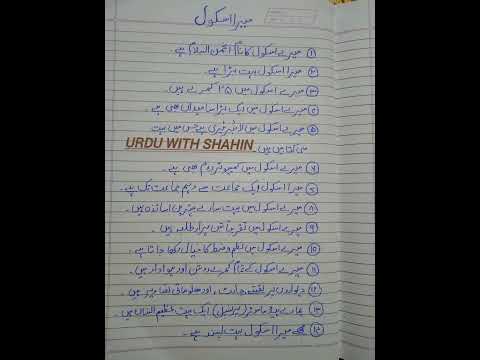 میرا اسکول
① میرے اسکول کا نام انجمن السلام ہے۔
② میرا اسکول بہت بڑا ہے۔
③ میرے اسکول میں ۲۵ کمرے ہیں۔
④ میرے اسکول میں ایک بڑا سا میدان بھی ہے۔
⑤ میرے اسکول میں لائبریری ہے جس میں بہت
سی کتابیں ہیں
URDU WITH SHAHIN
⑥ میرے اسکول میں کمپیوٹر روم بھی ہے۔
⑦ میرا اسکول ایک جماعت سے دہم جماعت تک ہے۔
⑧ میرے اسکول میں بہت سارے بہترین اساتذہ ہیں۔
⑨ میرے اسکول میں تقریباً تین ہزار طلبہ ہیں۔
⑩ میرے اسکول میں نظم و ضبط کا خیال رکھا جاتا ہے۔
⑪ میرے اسکول کے تمام کمرے روشن اور ہوادار ہیں۔
⑫ دیواروں پر نقشے، چارٹ، اور معلوماتی تصاویر ہیں۔
⑬ ہمارے ہیڈ ماسٹر (پرنسپل) ایک بہت عظیم انسان ہیں۔
⑭ مجھے میرا اسکول بہت پسند ہے۔